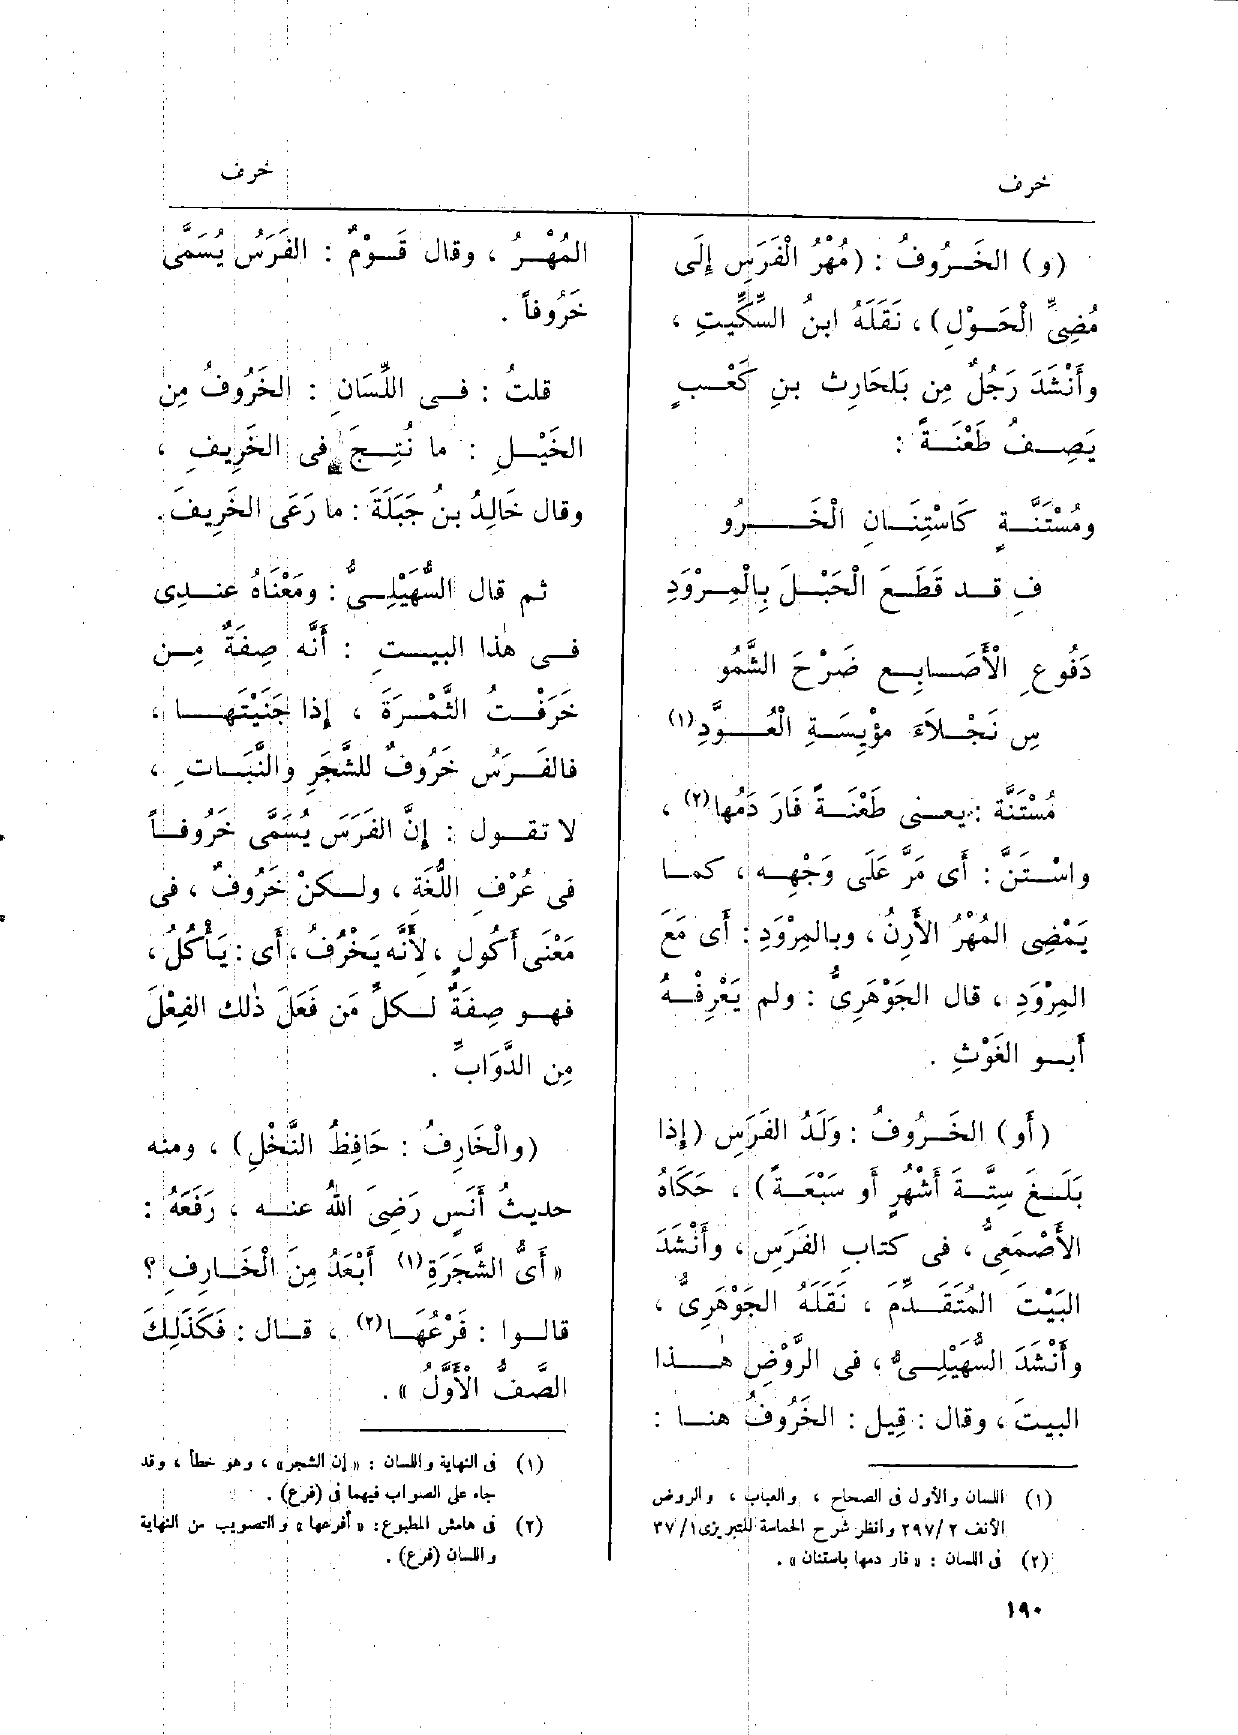 خرف
خرف
(و) الخَـرُوفُ : (مُهْرُ الْفَرَسِ إِلَى
مُضِىِّ الْحَـوْلِ) ، نَقَلَهُ ابنُ السِّكِّيتِ ،
وأَنْشَدَ رَجُلٌ مِن بَلحَارِث بنِ كَعْـبٍ
يَصِـفُ طَعْنَـةً :
ومُسْتَنَّـةٍ كَاسْتِنَـانِ الْخَـــرُو
فِ قـد قَطَـعَ الْحَبْـلَ بِالْمِـرْوَدِ
دَفُوعِ الْأَصَـابِـعِ ضَرْحَ الشَّمُو
سِ نَجْـلاَءَ مُؤْيِسَـةِ الْعُـــوَّدِ(١)
مُسْتَنَّة : يعـنى طَعْنَـةً فَارَ دَمُها(٢) ،
واسْـتَنَّ : أَى مَرَّ عَلَى وَجْهِـه ، كمـا
يَمْضِى المُهْرُ الأَرِنُ ، وبالمِرْوَدِ : أَى مَعَ
المِرْوَدِ ، قال الجَوْهَرِىُّ : ولم يَعْرِفْـهُ
أَبـو الغَوْثِ .
(أَو) الخَـرُوفُ : وَلَدُ الفَرَسِ (إِذا
بَلَـغَ سِتَّـةَ أَشْهُرٍ أَو سَبْعَـةً) ، حَكَاهُ
الأَصْمَعِىُّ ، فى كتابِ الفَرَسِ ، وأَنْشَدَ
البَيْتَ المُتَقَـدِّمَ ، نَقَلَهُ الجَوْهَرِىُّ ،
وأَنْشَدَ السُّهَيْلِـىُّ ، فى الرَّوْضِ هٰـذا
البيتَ ، وقال : قِيل : الخَرُوفُ هنـا :
(١) اللسان والأول فى الصحاح ، والعباب ، والروض
الأنف ٢/ ٢٩٧ وانظر شرح الحماسة للتبريزى ١/ ٣٧
(٢) فى اللسان : « فار دمها باستنان » .
١٩٠
المُهْـرُ ، وقال قَـوْمٌ : الفَرَسُ يُسَمَّى
خَرُوفاً .
قلتُ : فـى اللِّسَانِ : الخَرُوفُ مِن
الخَيْـلِ : ما نُتِـجَ فى الخَرِيفِ ،
وقال خَالِدُ بنُ جَبَلَةَ : ما رَعَى الخَرِيفَ .
ثم قال السُّهَيْلِـىُّ : ومَعْنَاهُ عنـدِى
فـى هٰذا البيـتِ : أَنَّه صِفَةٌ مِـن
خَرَفْـتُ الثَّمْـرَةَ ، إِذا جَنَيْتَهـا ،
فالفَـرَسُ خَرُوفٌ للشَّجَرِ والنَّبَـاتِ ،
لا تقـول : إِنَّ الفَرَسَ يُسَمَّى خَرُوفـاً
فى عُرْفِ اللُّغَةِ ، ولـكنْ خَرُوفٌ ، فى
مَعْنَى أَكُولٍ ، لأَنَّه يَخْرُفُ ، أَى : يَأْكُلُ ،
فهـو صِفَةٌ لـكلِّ مَن فَعَلَ ذٰلك الفِعْلَ
مِن الدَّوَابِّ .
(والْخَارِفُ : حَافِظُ النَّخْلِ) ، ومنه
حديثُ أَنَسٍ رَضِىَ اللهُ عنـه ، رَفَعَهُ :
« أَىُّ الشَّجَرَةِ(١) أَبْعَدُ مِنَ الْخَـارِفِ ؟
قالـوا : فَرْعُهَـا(٢) ، قـال : فَكَذَلِكَ
الصَّفُّ الْأَوَّلُ » .
(١) فى النهاية واللسان : « إن الشجر» ، وهو خطأ ، وقد
جاء على الصواب فيهما فى (فرع) .
(٢) فى هامش المطبوع : « أفرعها » والتصويب من النهاية
واللسان (فرع) .